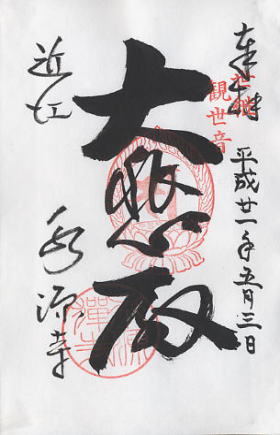 奉拝
平成廿一年五月三日
世継
観世音
大悲殿
近江
永源寺